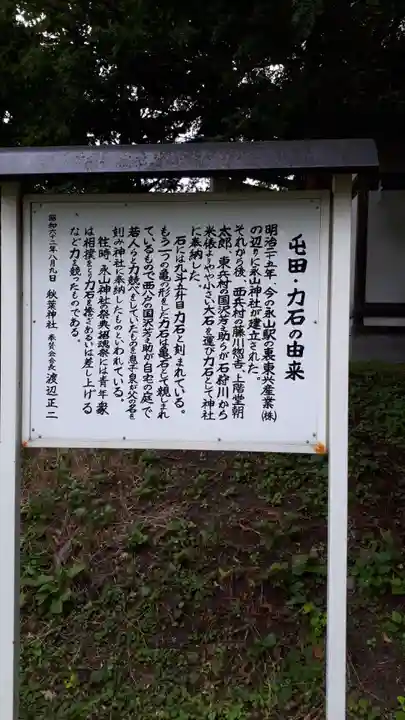 屯田・力石の由来
明治二十五年、今の永山駅の裏、東兴産業(株)
の辺りに永山神社が建立された。
それから後、西兵村の藤川惣吉、上階堂朝
太郎、東兵村の国沢芳之助らが石狩川から
米俵よりやや小さい大石を運び力石として神社
に奉納した。
石には九斗五升目力石と刻まれている。
もう一つの亀の形をした力石は亀石として親しまれ
ているもので西八分の国沢芳之助が自宅の庭で
若人らと力競べをしていたものを息子泉が父の名を
刻み神社に奉納したものといわれている。
往時、永山神社祭典招魂祭には青年 衆
は相撲をとり力石を捲きあるいは差し上げる
など力を競ったものである。
昭和六十二年八月九日 秋葉神社 奉賛会会長 渡辺正二